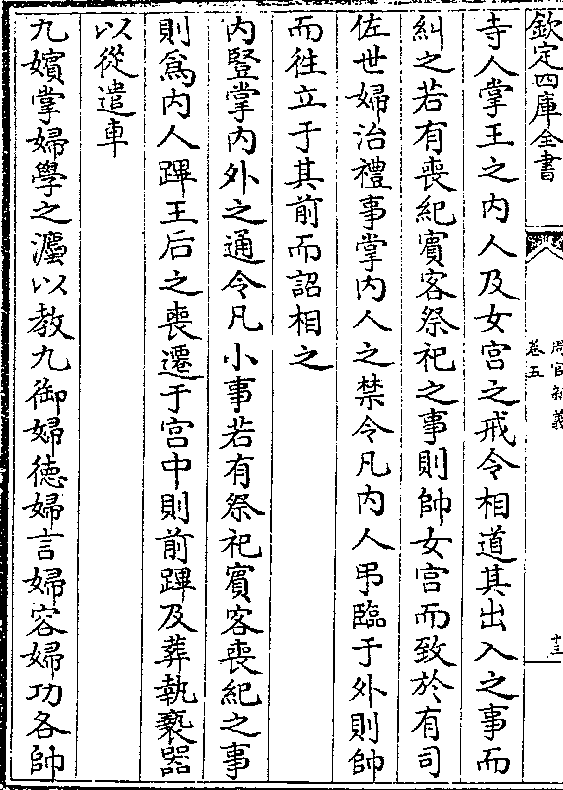 欽定四庫全書
周官新義
卷五
十三
寺人掌王之内人及女宫之戒令相道其出入之事而
糾之若有喪紀賓客祭祀之事則帥女宫而致於有司
佐世婦治禮事掌内人之禁令凡内人弔臨于外則帥
而往立于其前而詔相之
内豎掌内外之通令凡小事若有祭祀賓客喪紀之事
則為内人蹕王后之喪遷于宫中則前蹕及葬執褻器
以從遣車
九嬪掌婦學之灋以教九御婦徳婦言婦容婦功各帥